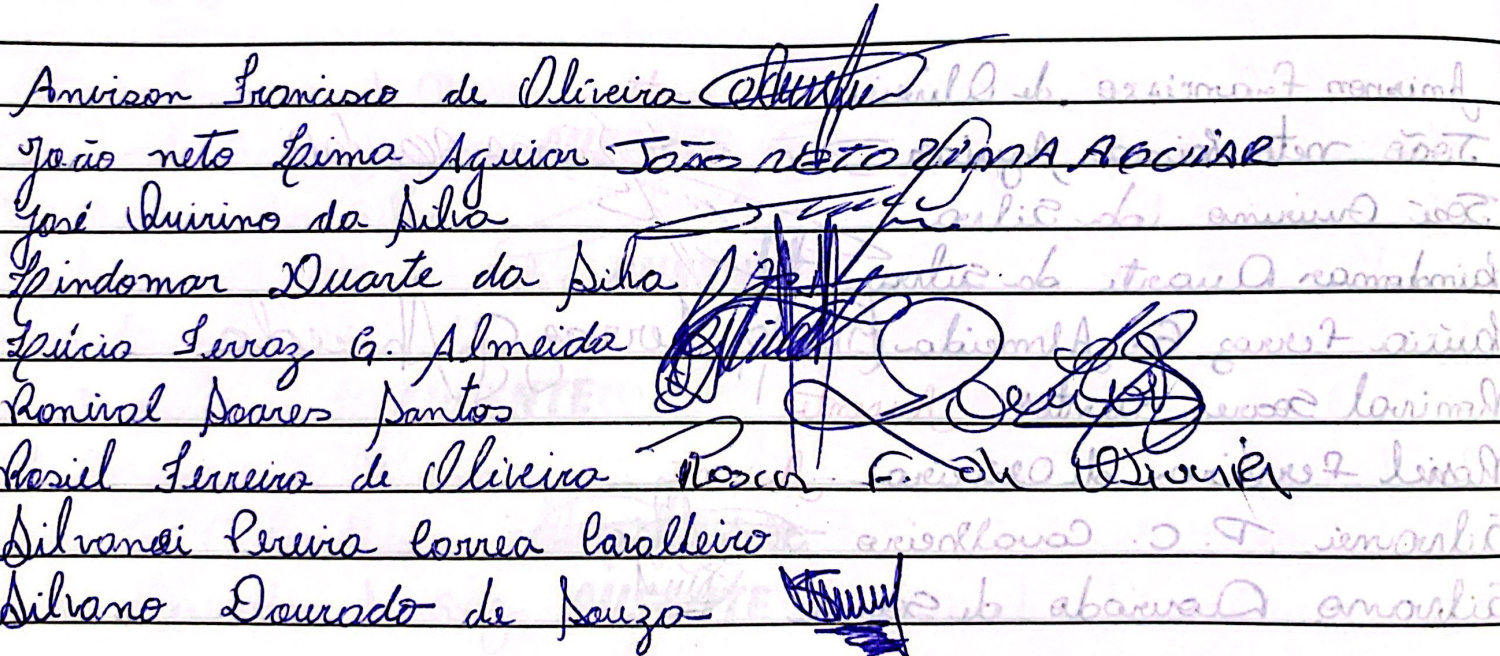 Anvison Francisco de Oliveira
João neto Lima Aguiar João NETO LIMA AGUIAR
José Quirino da Silva
Lindomar Duarte da Silva
Lúcio Ferraz G. Almeida
Ronival Soares Santos
Rosiel Ferreira de Oliveira F. de Oliveira
Silvanei Pereira Correa Cavalheiro
Silvano Dourado de Souza